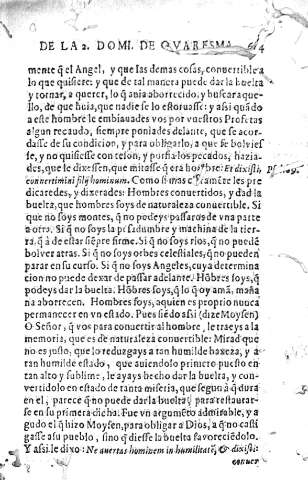 DE LA 2. DOMI. DE QVARESMA. 4
mente q̃ el Angel, y que las demas cosas, conuertible a
lo que quisiere: y que de tal manera puede dar la buelta
y tornar, a querer, lo q̃ auia aborrecido, y buscar aque-
llo, de que huia, que nadie se lo estoruasse: y assi quãdo
a este hombre le embiauades vos por vuestros Profetas
algun recaudo, siempre poniades delante, que se acor-
dasse de su condicion, y para obligarlo, a que se boluies
se, y no quisiesse con teson, y porfia los pecados, hazia-
des, que le dixessen, que mirasse q̃ era hõbre: Et dixisti,
conuertimini filij hominum. Como si mas claramẽte les pre
dicaredes, y dixerades: Hombres conuertidos, y dad la
buelta, que hombres soys de naturaleza conuertible. Si
que no soys montes, q̃ no podeys passaros de vna parte
a otra. Si q̃ no soys la pesadumbre y machina de la tie-
rra, q̃ à de estar siẽpre firme. Si q̃ no soys rios, q̃ no puedẽ
bolver atras. Si q̃ no soys orbes celestiales, q̃ no pueden
parar en su curso. Si q̃ no soys Angeles, cuya determina
cion no puede dexar de passar adelante. Hõbres soys, q̃
podeys dar la buelta. Hõbres soys, q̃ lo q̃ oy amã, maña
na aborrecen. Hombres soys, a quien es proprio nunca
permanecer en vn estado. Pues siẽdo assi (dize Moysen)
O Señor, q̃ vos para conuertir al hombre, le traeys a la
memoria, que es de naturaleza conuertible: Mirad que
no es justo, que lo reduzgays a tan humilde baxeza, y a
tan humilde estado, que auiendolo primero puesto en
tan alto y sublime, le ayays hecho dar la buelta, y con-
vertidolo en estado de tanta miseria, que segun à q̃ dura
en el, parece q̃ no puede dar la buelta para restaurar-
se en su primera dicha. Fue vn argumẽto admirable, y a
gudo el q̃ hizo Moysen, para obligar a Dios, a q̃ no casti
gasse a su pueblo, sino q̃ diesse la buelta fauoreciẽdolo.
Y assi le dixo: Ne auertas hominem in humilitatẽ, & dixisti:
conuer